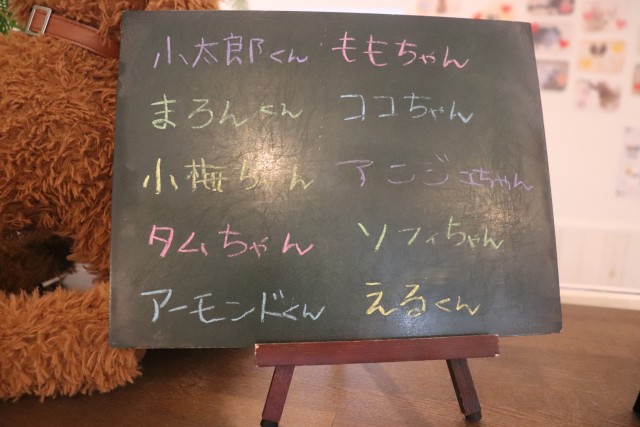 小太郎くん ももちゃん
まろんくん ココちゃん
小梅ちゃん アンジュちゃん
タムちゃん ソフィちゃん
アーモンドくん えるくん